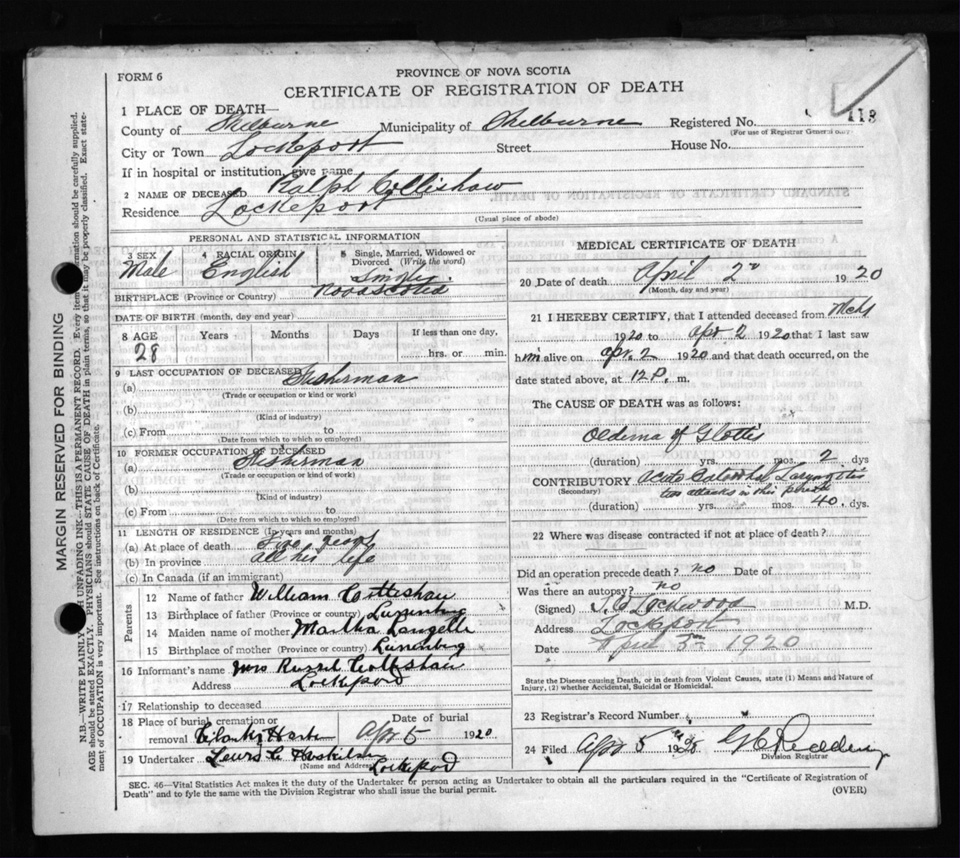 FORM 6
PROVINCE OF NOVA SCOTIA
CERTIFICATE OF REGISTRATION OF DEATH
1 PLACE OF DEATH—
County of Shelburne Municipality of Shelburne Registered No. 113
(For use of Registrar General only)
City or Town Lockeport Street House No.
If in hospital or institution, give name
2 NAME OF DECEASED Ralph Collishaw
Residence Lockeport
(Usual place of abode)
PERSONAL AND STATISTICAL INFORMATION
3 SEX Male
4 RACIAL ORIGIN English
5 Single, Married, Widowed or Divorced (Write the word) Single
BIRTHPLACE (Province or Country) Nova Scotia
DATE OF BIRTH (month, day and year)
8 AGE 28 Years Months Days If less than one day, hrs. or min.
9 LAST OCCUPATION OF DECEASED
(a) Fisherman
(Trade or occupation or kind or work)
(b)
(Kind of industry)
(c) From to
(Date from which to which so employed)
10 FORMER OCCUPATION OF DECEASED
(a) Fisherman
(Trade or occupation or kind of work)
(b)
(Kind of industry)
(c) From to
(Dates from which to which so employed)
11 LENGTH OF RESIDENCE (In years and months)
(a) At place of death years
(b) In province all his life
(c) In Canada (if an immigrant)
Parents
12 Name of father William
13 Birthplace of father (Province or country) Lunenburg
14 Maiden name of mother Martha Langelle
15 Birthplace of mother (Province or country) Lunenburg
16 Informant's name Mrs
Address Lockeport
17 Relationship to deceased
18 Place of burial, cremation or removal
Date of burial Apr 5 1920
19 Undertaker Lewis Lockeport
(Name and Address)
MEDICAL CERTIFICATE OF DEATH
20 Date of death April 2nd 1920
(Month, day and year)
21 I HEREBY CERTIFY, that I attended deceased from Mch
1920 to Apr 2 1920 that I last saw
him alive on Apr. 2 1920 and that death occurred, on the
date stated above, at 12 P. m.
The CAUSE OF DEATH was as follows:
Oedema of Glottis
(duration) yrs. mos. 2 dys
CONTRIBUTORY Acute Catarrhal Laryngitis
(Secondary) two attacks in this period
(duration) yrs. mos. 40 dys.
22 Where was disease contracted if not at place of death?
Did an operation precede death? no Date of
Was there an autopsy? no
(Signed) Lockwood M.D.
Address Lockeport
Date April 3rd 1920
State the Disease causing Death, or in death from Violent Causes, state (1) Means and Nature of
Injury, (2) whether Accidental, Suicidal or Homicidal.
23 Registrar's Record Number
24 Filed Apr 5
Division Registrar
SEC. 46—Vital Statistics Act makes it the duty of the Undertaker or person acting as Undertaker to obtain all the particulars required in the "Certificate of Registration of
Death" and to fyle the same with the Division Registrar who shall issue the burial permit.
(OVER)
MARGIN RESERVED FOR BINDING
N.B.—WRITE PLAINLY UNFADING INK—THIS IS A PERMANENT RECORD. Every item should be carefully supplied.
AGE should be stated EXACTLY. PHYSICIANS should STATE CAUSE OF DEATH in plain terms, so that it may be properly classified. Exact state-
ment of OCCUPATION is very important. See instructions on back of Certificate.